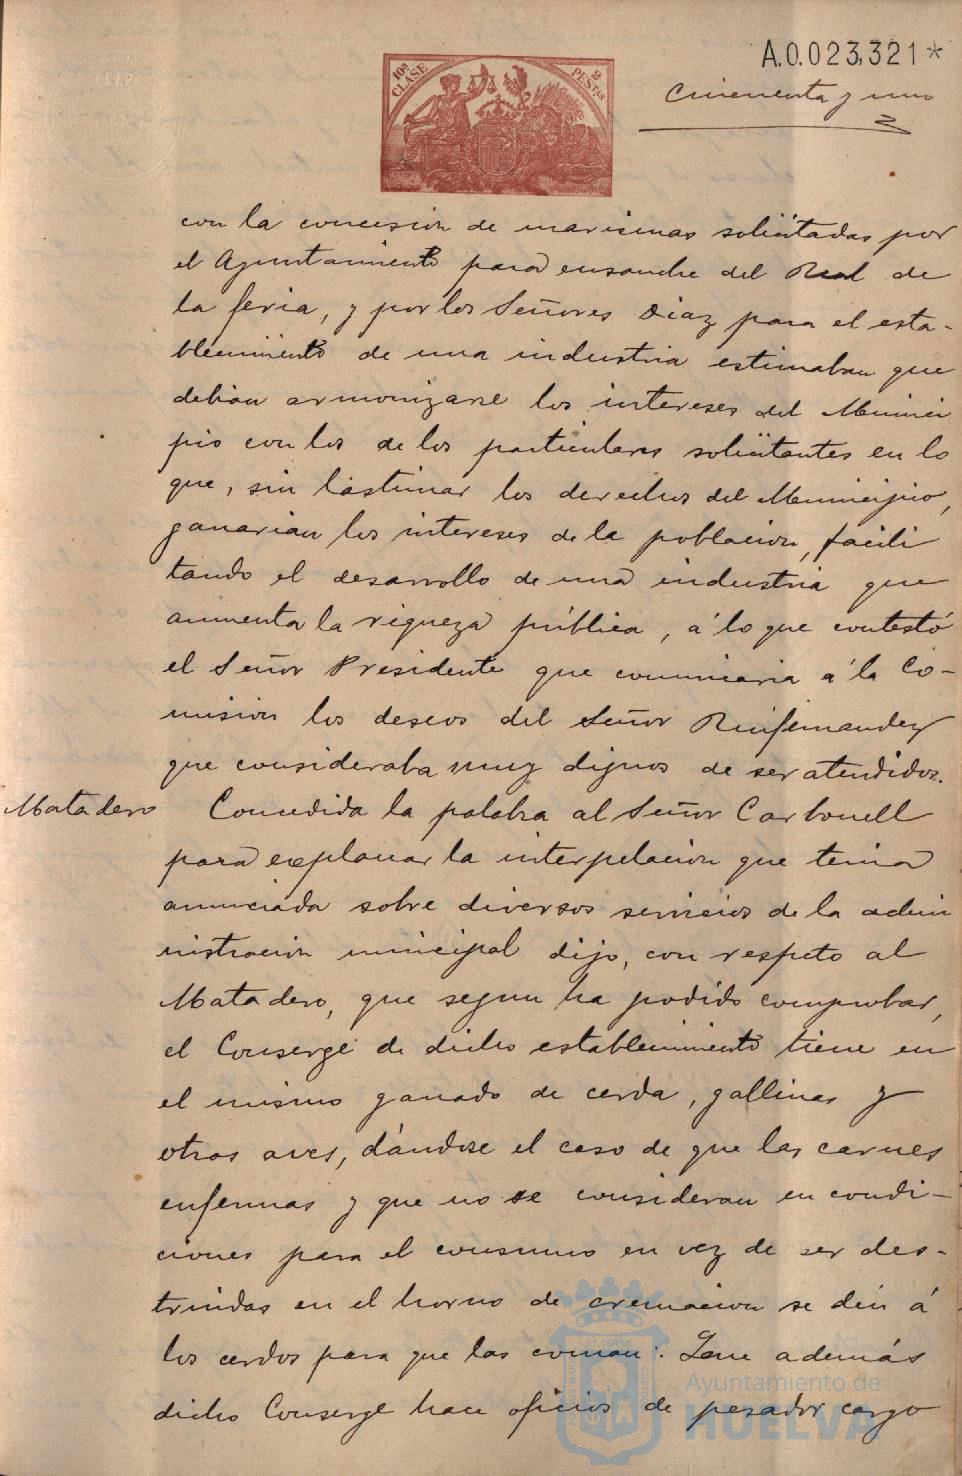 A.0.023,321*
10ª CLASE
2 PESTAS
Cincuenta y uno
con la concesion de marismas solicitadas por
el Ayuntamiento para ensanche del Real de
la feria, y por los Señores Diaz para el esta-
blecimiento de una industria estimaban que
debian armonizarse los intereses del Munici
pio con los de los particulares solicitantes en lo
que, sin lastimar los derechos del Municipio,
ganarian los intereses de la poblacion, facili
tando el desarrollo de una industria que
aumenta la riqueza pública, á lo que contestó
el Señor Presidente que comunicaria á la Co-
mision los deseos del Señor Ruifernandez
que consideraba muy dignos de ser atendidos.
Matadero
Concedida la palabra al Señor Carbonell
para explanar la interpelacion que tenia
anunciada sobre diversos servicios de la admi
nistracion municipal dijo, con respeto al
Matadero, que segun ha podido comprobar,
el Conserge de dicho establecimiento tiene en
el mismo ganado de cerda, gallinas y
otras aves, dándose el caso de que las carnes
enfermas y que no se consideran en condi-
ciones para el consumo en vez de ser des-
truidas en el horno de cremacion se den á
los cerdos para que las coman. Que además
dicho Conserge hace oficios de pesador cargo
Ayuntamiento de
HUELVA